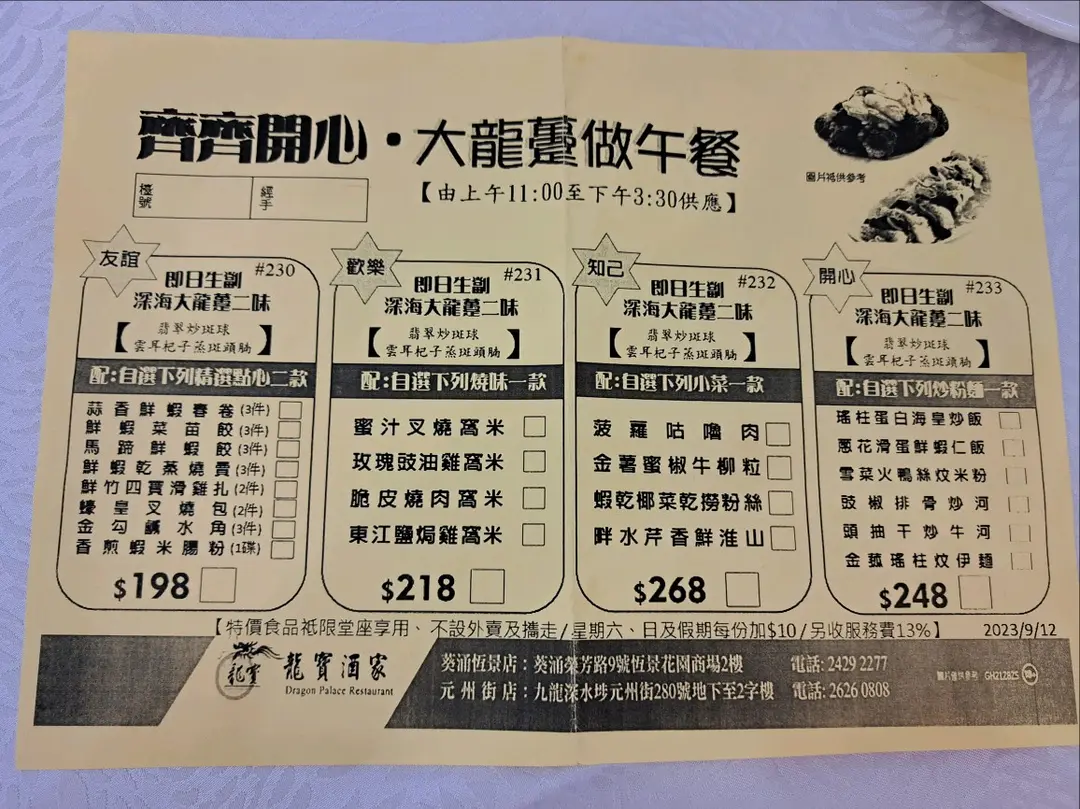 齊齊開心·大龍躉做午餐
【由上午11:00至下午3:30供應】
檯號
經手
圖片祗供參考
友誼
#230
即日生劏
深海大龍躉二味
【翡翠炒斑球
雲耳杞子蒸斑頭腩】
配:自選下列精選點心二款
蒜香鮮蝦春卷(3件)
鮮蝦菜苗餃(3件)
馬蹄鮮蝦餃(3件)
鮮蝦乾蒸燒賣(3件)
鮮竹四寶滑雞扎(2件)
蠔皇叉燒包(2件)
金勾鹹水角(3件)
香煎蝦米腸粉(1碟)
$198
歡樂
#231
即日生劏
深海大龍躉二味
【翡翠炒斑球
雲耳杞子蒸斑頭腩】
配:自選下列燒味一款
蜜汁叉燒窩米
玫瑰豉油雞窩米
脆皮燒肉窩米
東江鹽焗雞窩米
$218
知己
#232
即日生劏
深海大龍躉二味
【翡翠炒斑球
雲耳杞子蒸斑頭腩】
配:自選下列小菜一款
菠蘿咕嚕肉
金薯蜜椒牛柳粒
蝦乾椰菜乾撈粉絲
畔水芹香鮮淮山
$268
開心
#233
即日生劏
深海大龍躉二味
【翡翠炒斑球
雲耳杞子蒸斑頭腩】
配:自選下列炒粉麵一款
瑤柱蛋白海皇炒飯
蔥花滑蛋鮮蝦仁飯
雪菜火鴨絲炆米粉
豉椒排骨炒河
頭抽干炒牛河
金菰瑤柱炆伊麵
$248
【特價食品祗限堂座享用、不設外賣及攜走/星期六、日及假期每份加$10/另收服務費13%】
2023/9/12
龍寶
龍寶酒家
Dragon Palace Restaurant
葵涌恆景店：葵涌榮芳路9號恆景花園商場2樓 電話: 2429 2277
元州街店：九龍深水埗元州街280號地下至2字樓 電話: 2626 0808
圖片僅供參考 GH2128ZS